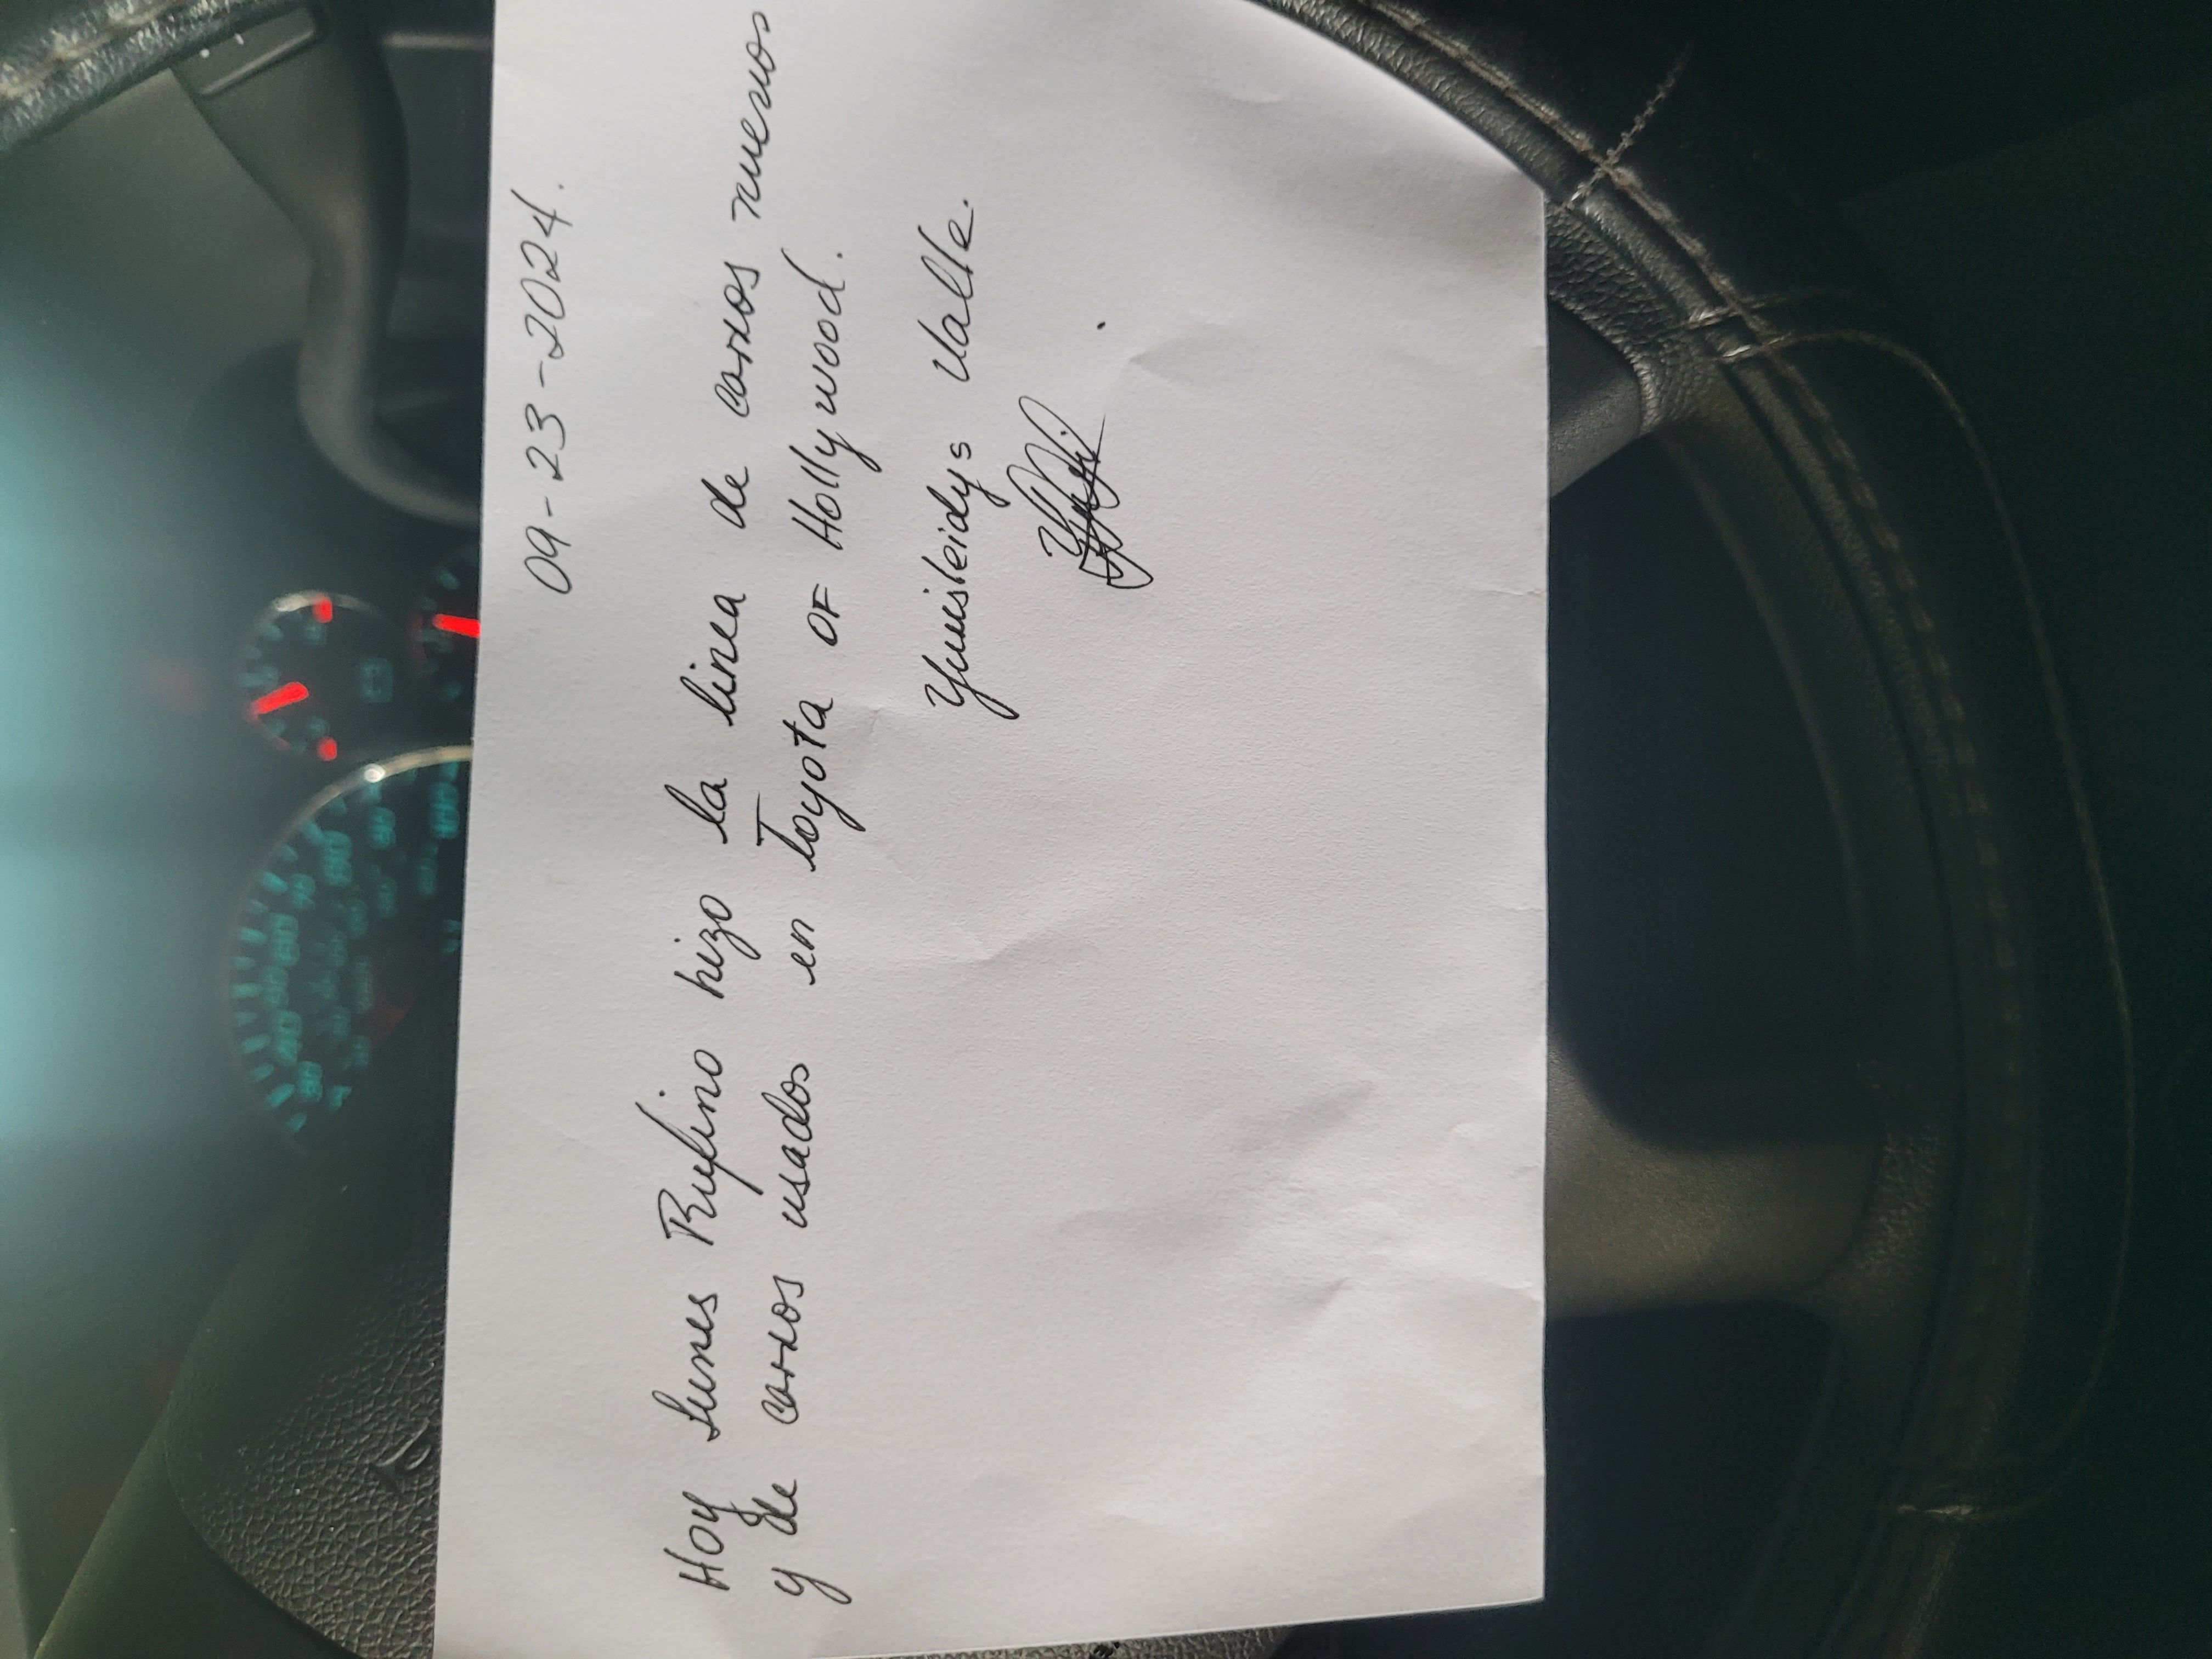 09-23-2024.
Hoy lunes Rufino hizo la linea de carros nuevos
y de carros usados en Toyota OF Hollywood.
Yunisleidys Valle.